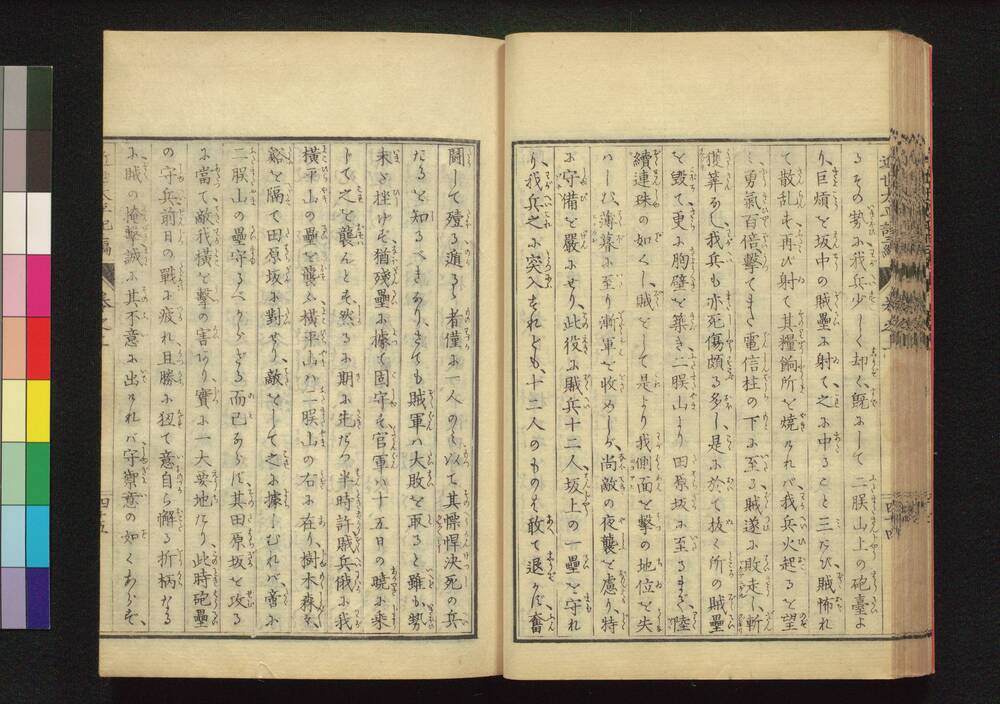 るその勢に我兵少しく却く既にして二股山上の砲臺よ
り巨煩を坂中の賊壘に射て之に中ること三たび賊怖れ
て散乱す再び射て其糧餉所を焼けれバ我兵火起るを望
ミ勇氣百倍撃てまさ電信柱の下に至る賊遂に敗走し斬
獲算なし我兵も亦死傷頗る多し是に於て抜く所の賊壘
を毀て更に胸壁を築き二股山より田原坂に至るまで陸
續連珠の如くし賊をして是より我側面を撃の地位を失
ハしむ薄暮に至り漸軍を收めしが尚敵の夜襲を慮り特
に守備を嚴にせり此役に賊兵十二人坂上の一壘を守れ
り我兵之に突入すれども十二人のもの敢て退かず奮
闘して殪る遁るゝ者僅に一人のミ以て其慓悍決死の兵
なるを知るべきあり さても賊軍ハ大敗を取ると雖も勢
未だ挫けず猶殘壘に據て固守す官軍ハ十五日の曉に乘
じて之を襲んとす然るに期に先だつ半時許賊兵俄に我
横平山の壘を襲ふ横平山ハ二股山の右に在り樹木森々
谿を隔て田原坂に對せり敵をして之に據しむれバ啻に
二股山の壘守るべからざる而已ならず其田原坂を攻る
に當て敵我横を撃の害あり實に一大要地たり此時砲壘
の守兵前日の戰に疲れ且勝に狃て意自ら懈る折柄なる
に賊の掩撃誠に其不意に出けれバ守禦意の如くあらず
近世太平記
四十四
四十五